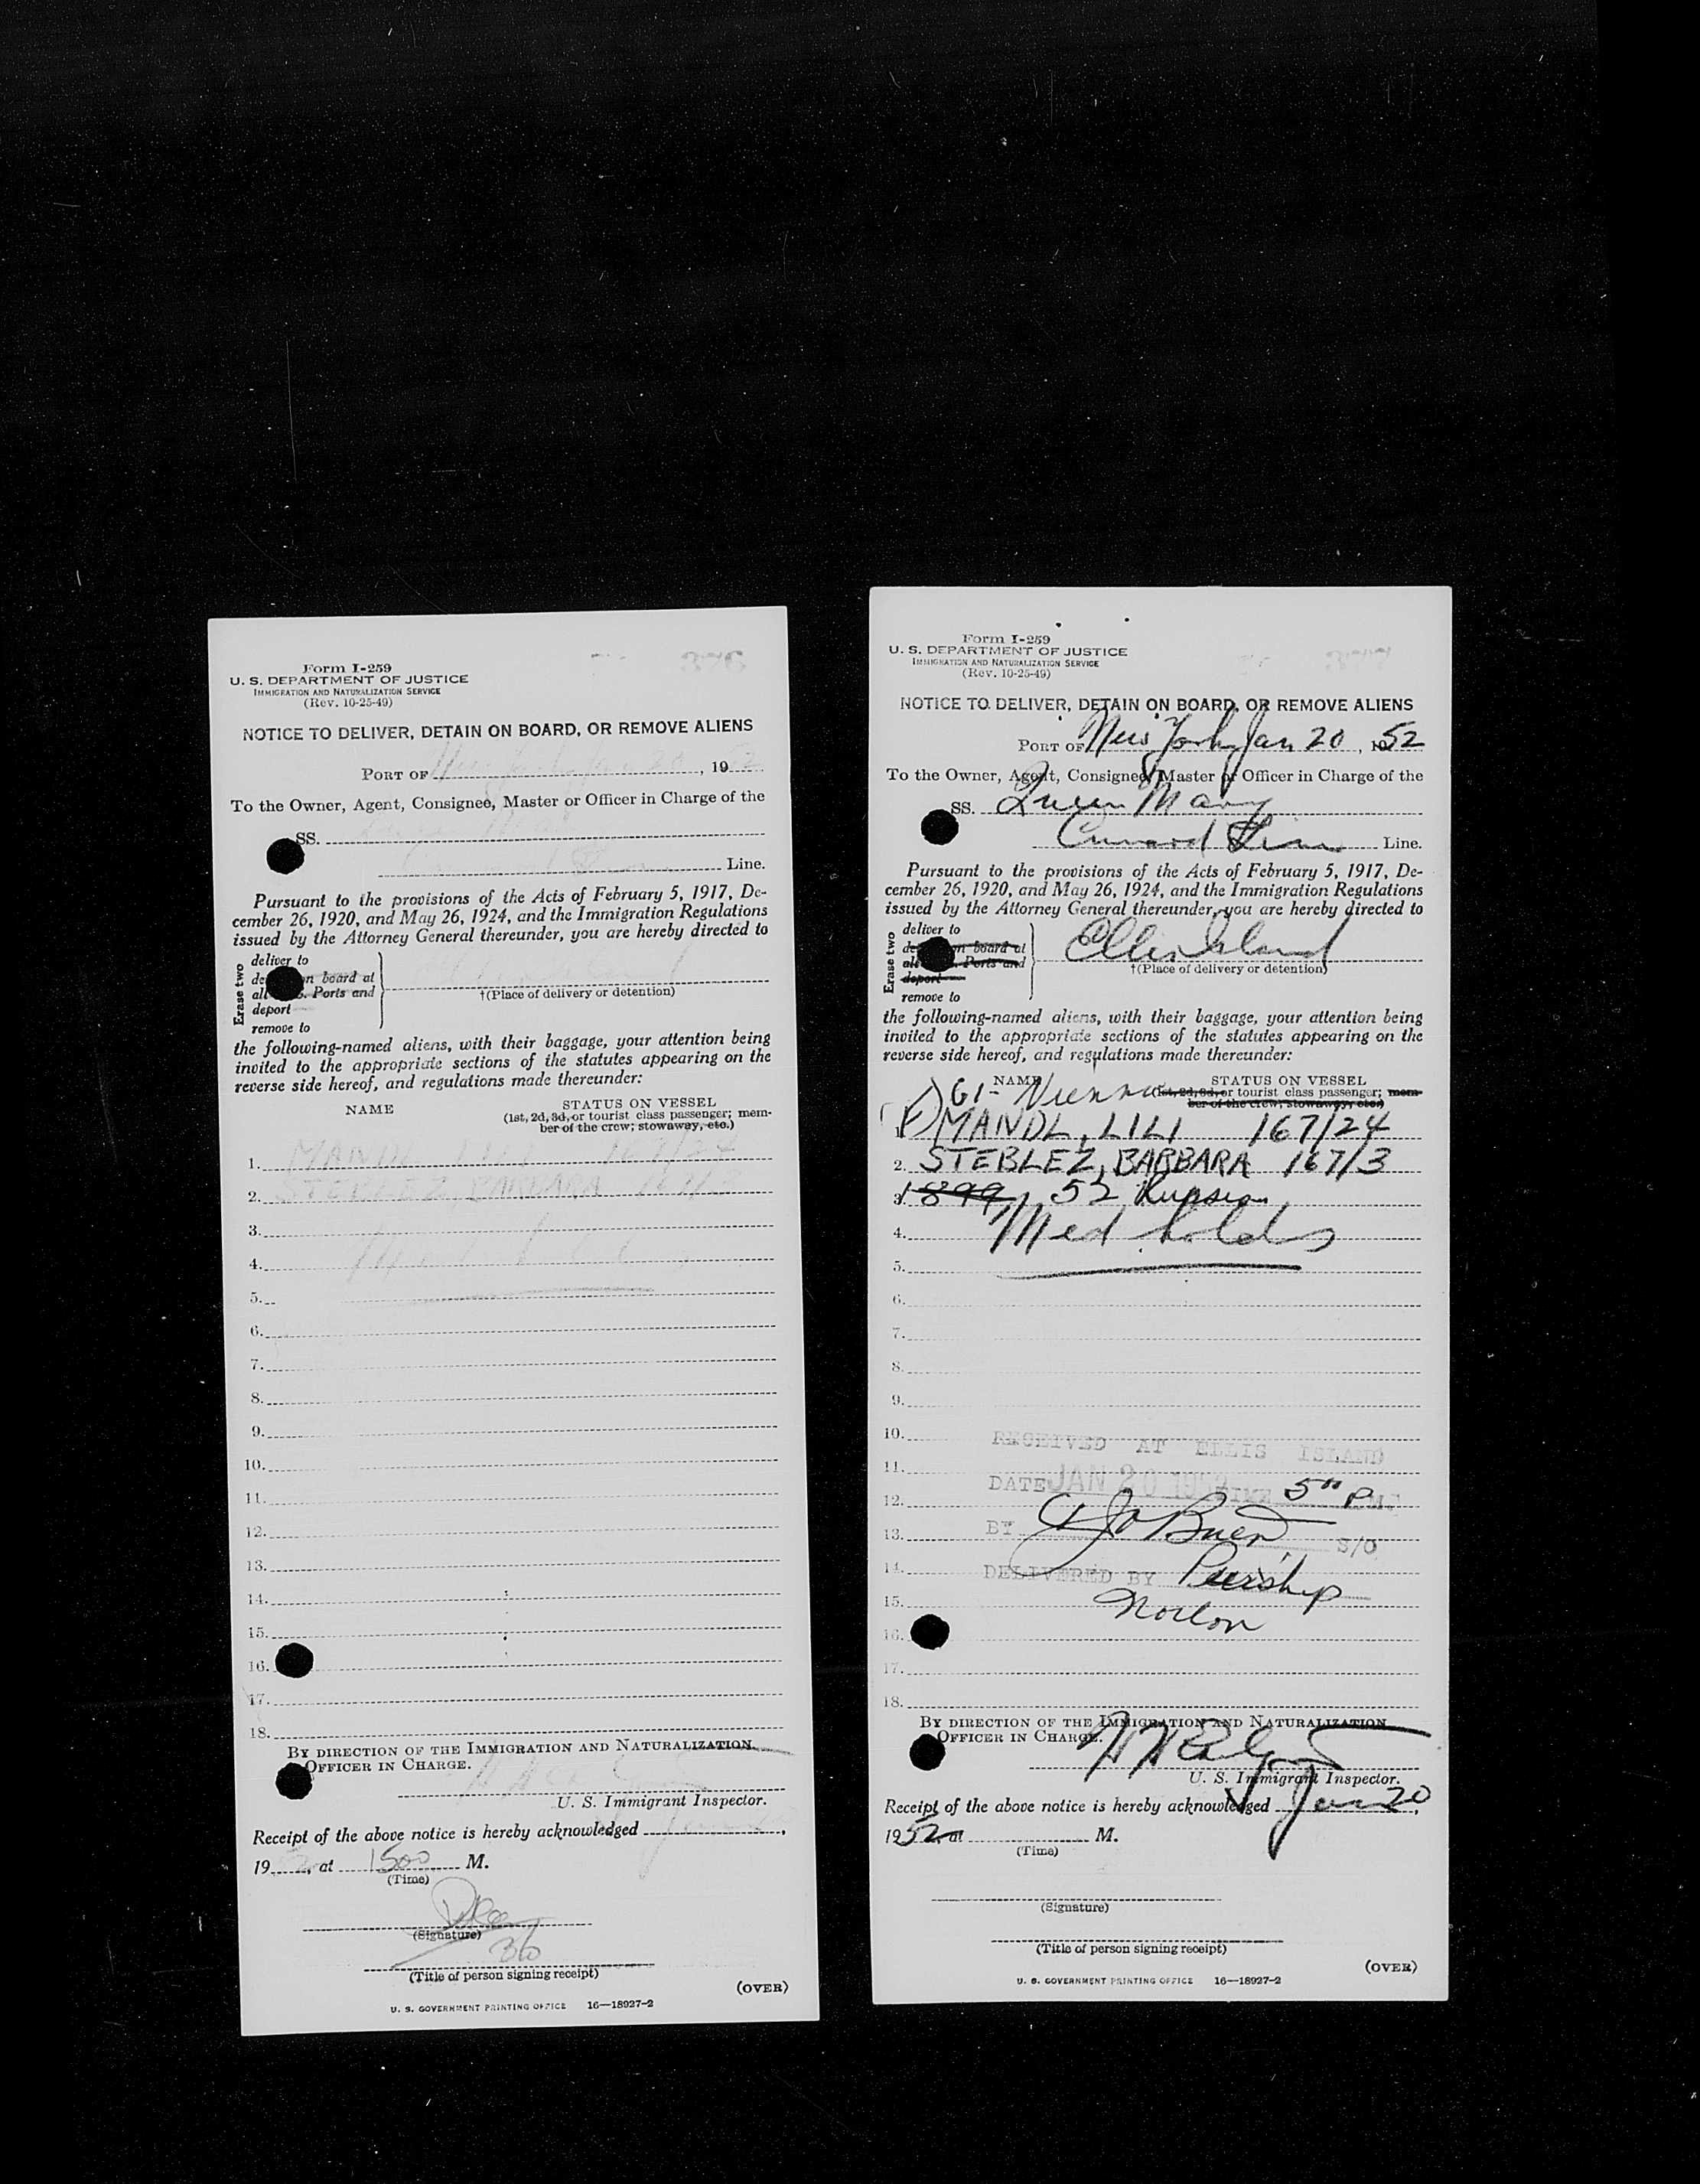 Form I-259
U. S. DEPARTMENT OF JUSTICE
IMMIGRATION AND NATURALIZATION SERVICE
(Rev. 10-25-49)
NOTICE TO DELIVER, DETAIN ON BOARD, OR REMOVE ALIENS
PORT OF New York Jan 20, 19 52
To the Owner, Agent, Consignee, Master or Officer in Charge of the
SS.
Line.
Pursuant to the provisions of the Acts of February 5, 1917, De-
cember 26, 1920, and May 26, 1924, and the Immigration Regulations
issued by the Attorney General thereunder, you are hereby directed to
Erase two
deliver to
on board at
Ports and
deport
remove to
†(Place of delivery or detention)
the following-named aliens, with their baggage, your attention being
invited to the appropriate sections of the statutes appearing on the
reverse side hereof, and regulations made thereunder:
NAME STATUS ON VESSEL
(1st, 2d, 3d, or tourist class passenger; mem-
ber of the crew; stowaway, etc.)
1. MANDL LILI 167/24
2. STEBLEZ BARBARA 167/3
3.
4.
5.
6.
7.
8.
9.
10.
11.
12.
13.
14.
15.
16.
17.
18.
BY DIRECTION OF THE IMMIGRATION AND NATURALIZATION
OFFICER IN CHARGE.
U. S. Immigrant Inspector.
Receipt of the above notice is hereby acknowledged
19 52, at 1500 M.
(Time)
(Signature)
(Title of person signing receipt)
(OVER)
U. S. GOVERNMENT PRINTING OFFICE 16—18927-2
Form I-259
U. S. DEPARTMENT OF JUSTICE
IMMIGRATION AND NATURALIZATION SERVICE
(Rev. 10-25-49)
NOTICE TO DELIVER, DETAIN ON BOARD, OR REMOVE ALIENS
PORT OF New York Jan 20, 1952
To the Owner, Agent, Consignee, Master or Officer in Charge of the
SS. Queen Mary
Cunard Line Line.
Pursuant to the provisions of the Acts of February 5, 1917, De-
cember 26, 1920, and May 26, 1924, and the Immigration Regulations
issued by the Attorney General thereunder, you are hereby directed to
Erase two
deliver to
on board at
Ports and
deport
remove to
Ellis Island
†(Place of delivery or detention)
the following-named aliens, with their baggage, your attention being
invited to the appropriate sections of the statutes appearing on the
reverse side hereof, and regulations made thereunder:
NAME STATUS ON VESSEL
61- Vienna (1st, 2d, 3d, or tourist class passenger; mem-
ber of the crew; stowaway, etc.)
1. MANDL, LILI 167/24
2. STEBLEZ, BARBARA 167/3
3. 1899, 52
4. Med holds
5.
6.
7.
8.
9.
10.
RECEIVED AT ELLIS ISLAND
11.
DATE JAN 20 1952 TIME 5 P M
12.
13. BY S/O
14. DELIVERED BY
15.
16.
17.
18.
BY DIRECTION OF THE IMMIGRATION AND NATURALIZATION
OFFICER IN CHARGE.
U. S. Immigrant Inspector.
Receipt of the above notice is hereby acknowledged Jan 20,
1952, at M.
(Time)
(Signature)
(Title of person signing receipt)
(OVER)
U. S. GOVERNMENT PRINTING OFFICE 16—18927-2